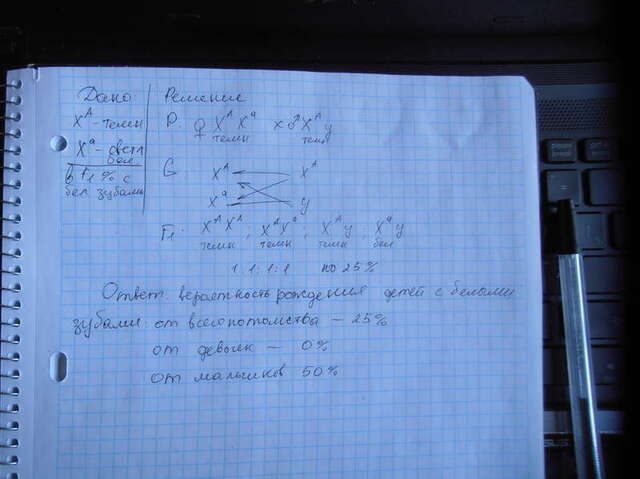 Дано: Решение
X^A - темн P: ♀ X^A X^a x ♂ X^A y
темн темн
X^a - светл
бел
в F1 % с
бел зубами
G X^A X^A
X^a y
F1: X^A X^A ; X^A X^a ; X^A y ; X^a y
темн темн темн бел
1 : 1 : 1 : 1 по 25%
Ответ: вероятность рождения детей с белыми
зубами: от всего потомства — 25%
от девочек — 0%
от мальчиков 50%
pause
break
ASUS